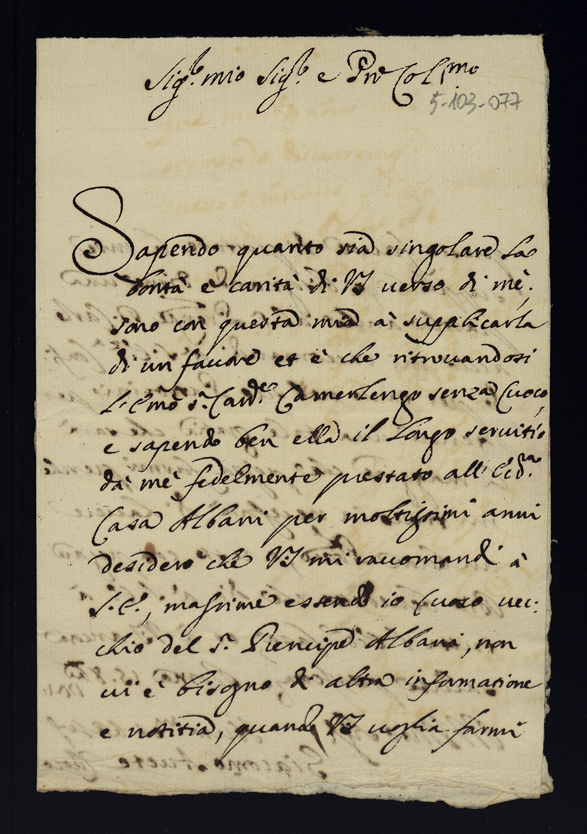 Sig.re mio Sig.re e Pne Col.mo
5-103-077
Sapendo quanto sia singolare la
bontà e carità di VS verso di mè,
sono con questa mia à supplicarla
di un favore et è che ritrouandosi
l'E.mo S.r Card.le Camerlengo senza Cuoco,
e sapendo ben ella il longo seruitio
da mè fedelmente prestato all'
Casa Albani per moltissimi anni
desidero che VS mi raccomandi à
S.E., massime essendo io Cuoco uec-
chio del S.r Prencipe Albani, non
ui è bisogno di altra informatione
e notitia, quando VS uoglia farmi